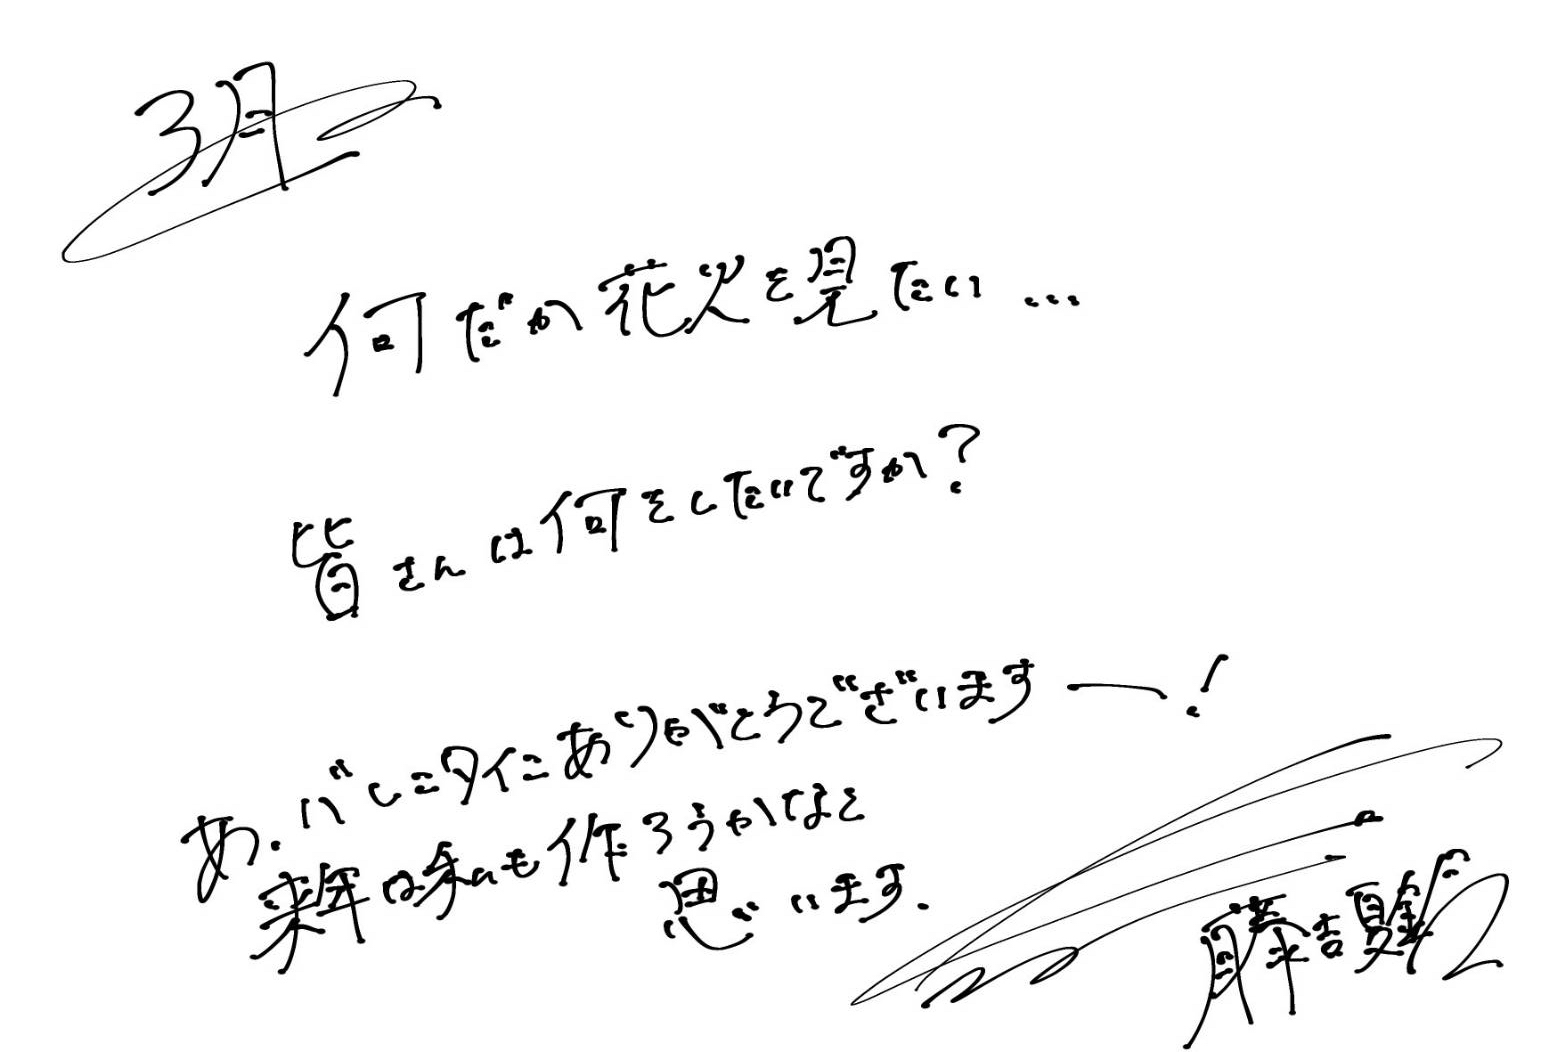 3月
何だか花火を見たい…
皆さんは何をしたいですか?
あ、バレンタインありがとうございますー!
来年は私も作ろうかなと
思います。
藤吉夏鈴